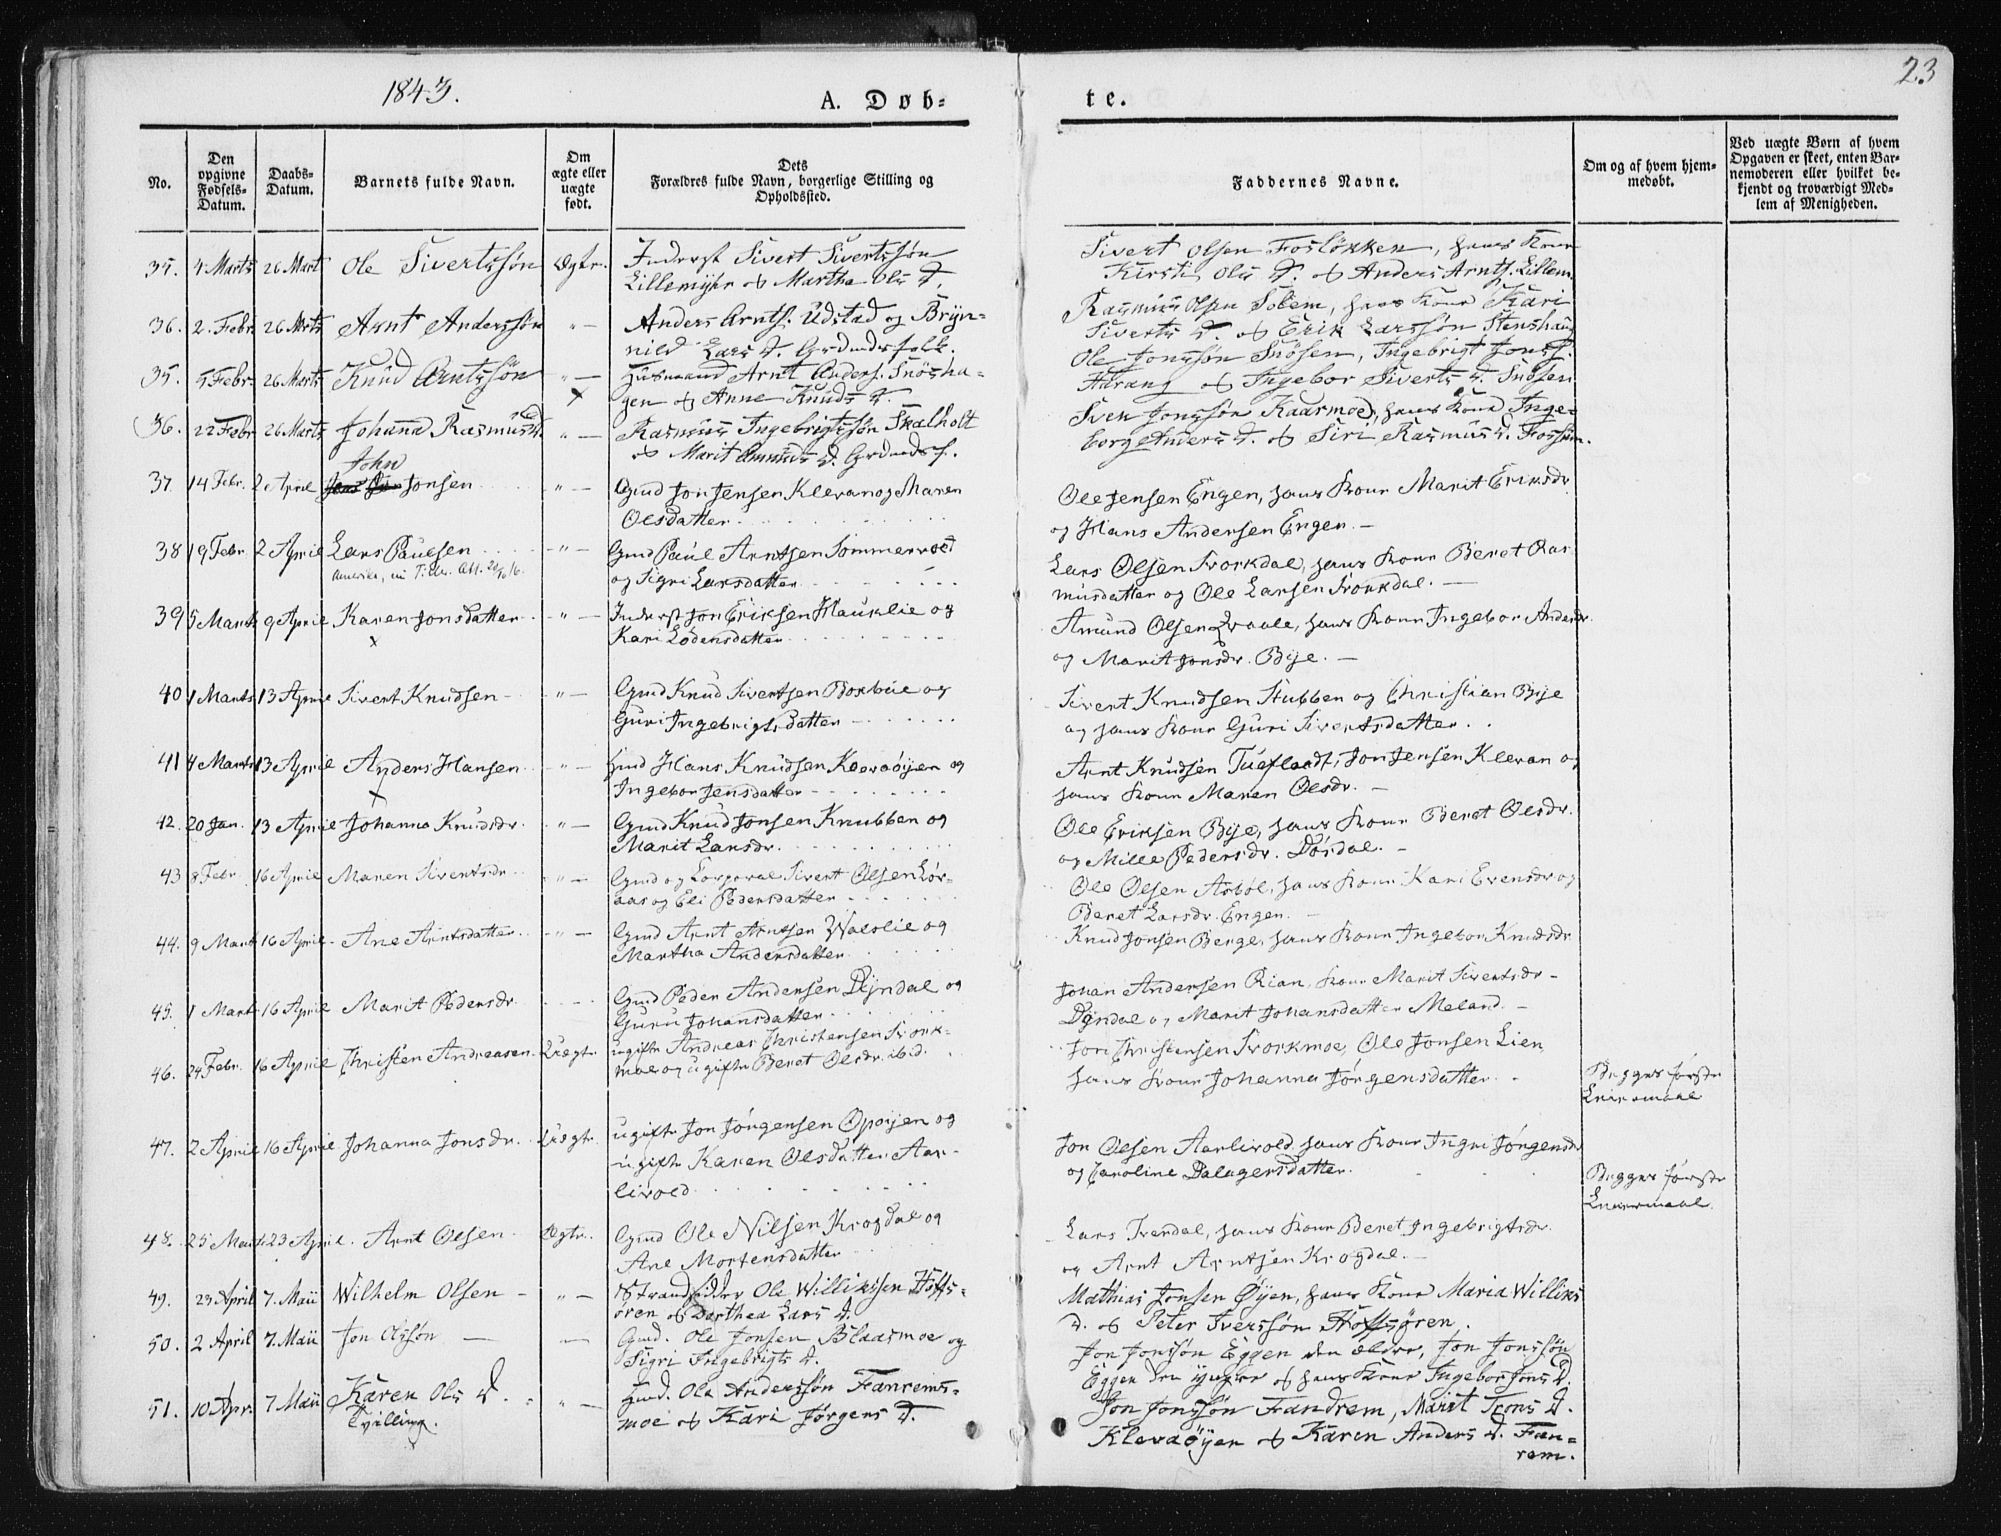 1843.
A. Døb-
te.
23
No.
Den opgivne Fødsels-Datum.
Daabs-Datum.
Barnets fulde Navn.
Om ægte eller uægte født.
Dets Forældres fulde Navn, borgerlige Stilling og Opholdssted.
Faddernes Navne.
Om og af hvem hjem-medøbt.
Ved uægte Børn af hvem Opgaven er skeet, enten Bar-nemoderen eller hvilket be-kjendt og troværdigt Med-lem af Menigheden.
35. 4 Marts 26 Mart Ole Sivertssøn Ægte. Inderst Sivert Sivertssøn
Lillemyhr & Martha Ols D.
Sivert Olsen Fosløkken, hans Kone
Kirsti Ols D. & Anders Arnts. Lillem.
36. 2. Febr 26 Marts Arnt Anderssøn " — Anders Arnts. Udstad og Bryn-
nild Lars D. Grdmdsfolk.
Rasmus Olsen Solem, hans Kone Kari
Siverts D. & Erik Larssøn Stenshaug
35. 5 Febr. 26 Marts Knud Arntssøn " — Husmand Arnt Anders. Snøsha-
x gen & Anne Knuds D.
Ole Jonssøn Snøsen, Ingebrigt Jonss.
& Ingebor Siverts D. Snøsen
36. 22 Febr 26 Marts Johanna Rasmusd. " — Rasmus Ingebrigtssøn Skalholt
& Marit Amunds D. Grdmdsf.
Sven Jonssøn Kaasmoe, hans Kone Inge-
borg Anders D. & Siri Rasmus D. Fossum.
37. 14 Febr. 2 April John Jonsen " — Gmd Jon Jensen Klevan og Maren
Olsdatter
Ole Jensen Engen, hans Kone Marit Eriksdr
og Hans Andersen Engen. —
38 19 Febr 2 April Lars Paulsen " — Gmd Paul Arntsen Sommervold
og Sigri Larsdatter
Lars Olsen Svorkdal, hans Kone Beret Ras-
musdatter og Ole Larsen Svorkdal. —
39 5 Marts 9 April Karen Jonsdatter " — Inderst Jon Eriksen Hauklie og
x Kari Lodensdatter
Amund Olsen Qvaale, hans Kone Ingebor Andersdr
og Marit Jonsdr. Bye. —
40 1 Marts 13 April Sivert Knudsen " — Gmd Knud Sivertsen Boxbue og
Guri Ingebrigtsdatter
Sivert Knudsen Stubben og Christian Bye
og hans Kone Guri Sivertsdatter.
41 4 Marts 13 April Anders Hansen " — Hmd Hans Knudsen Klevøyen og
x Ingebor Jensdatter
Arnt Knudsen Tuflaadt, Jon Jensen Klevan og
hans Kone Maren Olsdr. —
42. 20 Jan. 13 April Johanna Knudsdr. " — Gmd Knud Jonsen Knubben og
Marit Larsdr.
Ole Eriksen Bye, hans Kone Beret Olsdr.
og Mille Pedersdr. Dørdal. —
43 8 Febr. 16 April Maren Sivertsdr " — Gmd og Corporal Sivert Olsen Lør-
aas og Eli Pedersdatter
Ole Olsen Asbøl, hans Kone Kari Evensdr og
Beret Larsdr. Engen. —
44. 9 Mart 16 April Ane Arntsdatter " — Gmd Arnt Arntsen Walslie og
Martha Andersdatter
Knud Jonsen Berge, hans Kone Ingebor Knudsdr
45. 1 Mart 16 April Marit Pedersdr Gmd Peder Andersen Dyndal og
Guru Johansdatter
Johan Andersen Rian, Kone Marit Sivertsdr -
Dyndal og Marit Johansdatter Meland. —
46. 24 Febr. 16 April Christen Andreasen Uægte. ugifte Andreas Christensen Svork-
moe og ugifte Beret Olsdr. ibid.
Jon Christensen Svorkmoe, Ole Jonsen Lien,
hans Kone Johanna Jørgensdatter.
Begges første
Leiermaal
47. 2 April 16 April Johanna Jonsdr. Uægte. ugifte Jon Jørgensen Opøyen og
ugifte Karen Olsdatter Aar-
livold
Jon Olsen Aarlivold, hans Kone Ingri Jørgensdr
og Caroline Dalagersdatter.
Begges første
Leiermaal.
48. 25 Mart. 23 April. Arnt Olsen Ægte. Gmd Ole Nilsen Krogdal og
Ane Mortensdatter
Lars Tverdal, hans Kone Beret Ingebrigtsdr.
og Arnt Arntsen Krogdal. —
49. 23 April 7. Maii Wilhelm Olsen " — Strandsidder Ole Willikssen Hofs-
øren & Dorthea Lars D.
Mathias Jonsen Øyen, hans Kone Maria Williks
D. & Peter Iverssøn Hofsøren.
50. 2 April 7. Maii Jon Olssøn — Gmd. Ole Jonsen Blaasmoe og
Sigri Ingebrigts D.
Jon Jonssøn Eggen den ældre, Jon Jonssøn
Eggen den yngre & hans Kone Ingebor Jons D.
51. 10 Apr. 7 Maii Karen Ols D. " — Hmd. Ole Anderssøn Fanrems-
Tvilling. moe & Kari Jørgens D.
Jon Jonssøn Fandrem, Marit Trons D.
Klevøyen & Karen Anders D. Fan-
rem.